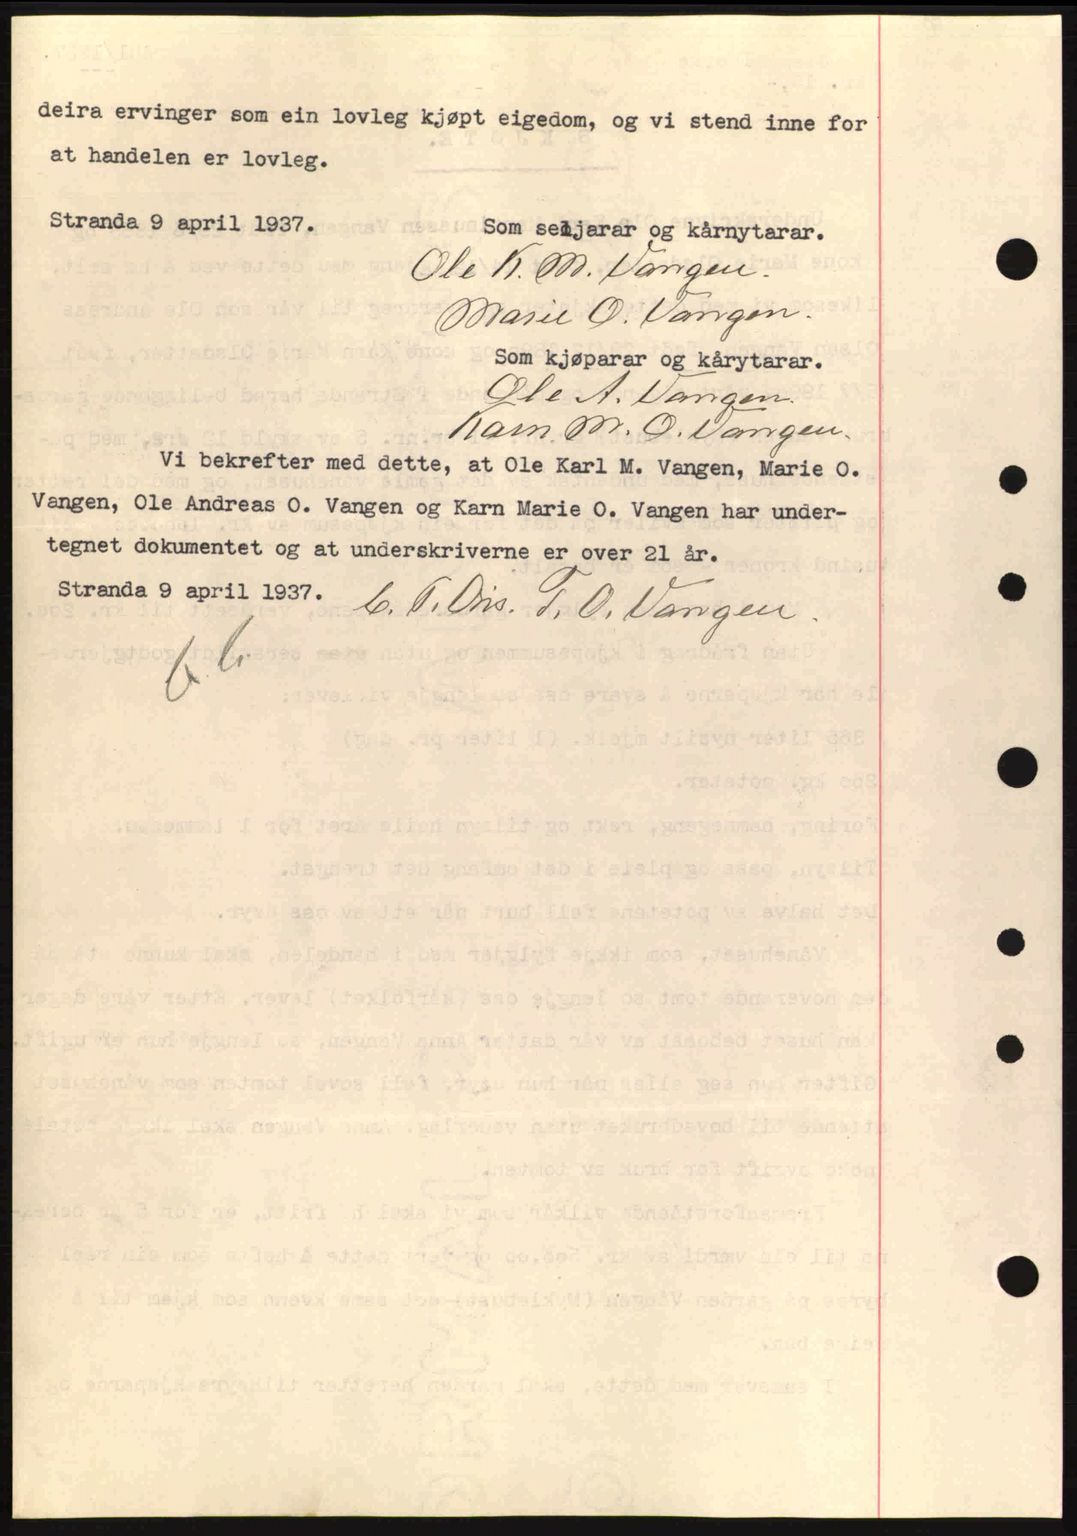 deira ervinger som ein lovleg kjøpt eigedom, og vi stend inne for
at handelen er lovleg.
Stranda 9 april 1937.
Som seljarar og kårnytarar.
Ole K. M. Vangen.
Marie O. Vangen.
Som kjøparar og kårytarar.
Ole A. Vangen.
Karn M. O. Vangen.
Vi bekrefter med dette, at Ole Karl M. Vangen, Marie O.
Vangen, Ole Andreas O. Vangen og Karn Marie O. Vangen har under-
tegnet dokumentet og at underskriverne er over 21 år.
Stranda 9 april 1937.
T. O. Vangen.